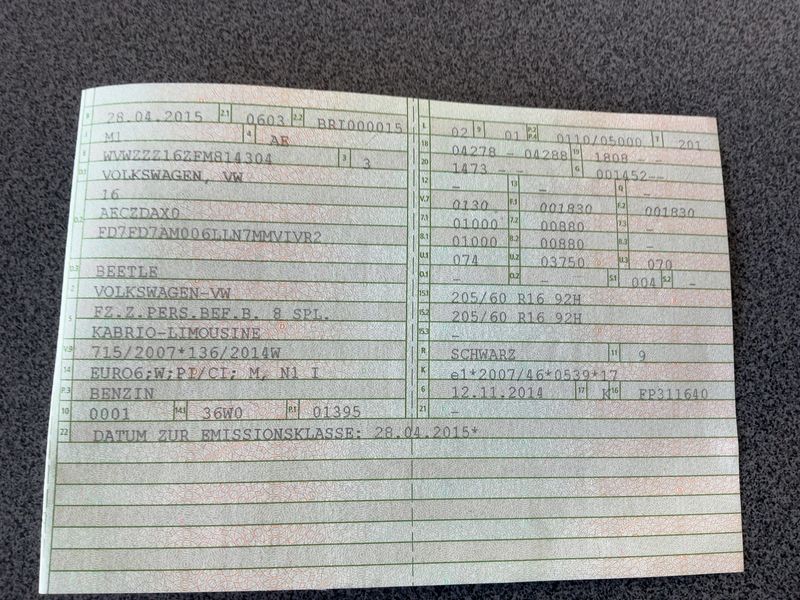 B 28.04.2015 2.1 0603 2.2 BRI000015
J M1 4 AE
E WVWZZZ16ZFM814304 3 3
D.1 VOLKSWAGEN, VW
16
D.2 AECZDAX0
FD7FD7AM006LLN7MMVIVR2
D.3 BEETLE
2 VOLKSWAGEN-VW
5 FZ.Z.PERS.BEF.B. 8 SPL.
KABRIO-LIMOUSINE
V.9 715/2007*136/2014W
14 EURO6;W;PI/CI; M, N1 I
P.3 BENZIN
10 0001 14.1 36W0 P.1 01395
22 DATUM ZUR EMISSIONSKLASSE: 28.04.2015*
L 02 9 01 P.2 P.4 0110/05000 T 201
18 04278 - 04288 19 1808 - -
20 1473 - - G 001452--
12 - 13 - Q -
V.7 0130 F.1 001830 F.2 001830
7.1 01000 7.2 00880 7.3 -
8.1 01000 8.2 00880 8.3 -
U.1 074 U.2 03750 U.3 070
O.1 - O.2 - S.1 004 S.2 -
15.1 205/60 R16 92H
15.2 205/60 R16 92H
15.3 -
R SCHWARZ 11 9
K e1*2007/46*0539*17
6 12.11.2014 17 K 16 FP311640
21 -